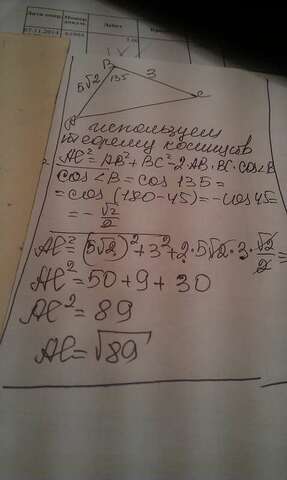 07.11.2014
B
5√2
135
3
C
A
используем
теорему косинусов
AC² = AB² + BC² - 2·AB·BC·cos∠B
cos∠B = cos 135 =
= cos (180 - 45) = - cos 45 =
= - √2/2
AC² = (5√2)² + 3² + 2·5√2·3·√2/2 =
AC² = 50 + 9 + 30
AC² = 89
AC = √89